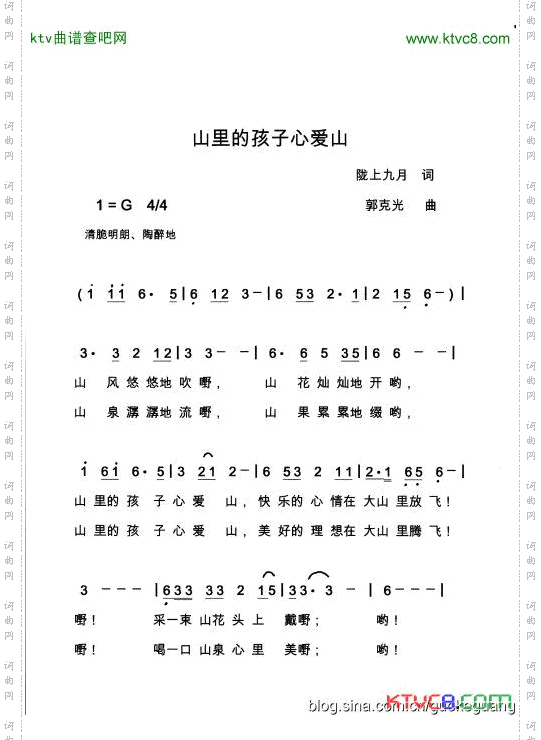 ktv曲谱查吧网 www.ktvc8.com
山里的孩子心爱山
陇上九月 词
1=G 4/4 郭克光 曲
清脆明朗、陶醉地
(1 11 6· 5|6 12 3-|6 53 2·1|2 15 6-)|
3· 3 2 12|3 3--|6· 6 5 35|6--|
山 风 悠 悠地 吹 嘢, 山 花 灿 灿地 开 哟,
山 泉 潺 潺地 流 嘢, 山 果 累 累地 缀 哟,
1 61 6· 5|3 21 2-|6 53 2 11|2·1 65 6-|
山 里的 孩 子 心 爱 山, 快 乐的 心 情在 大山 里放 飞!
山 里的 孩 子 心 爱 山, 美 好的 理 想在 大山 里腾 飞!
3 ---|633 33 2 15|33·3-|6---|
嘢! 采一束 山花 头 上 戴嘢; 哟!
嘢! 喝一口 山泉 心 里 美嘢; 哟!
KTVC8.COM
blog.sina.com.cn/guokeguang
词曲网
词曲网
词曲网
词曲网
词曲网
词曲网
词曲网
词曲网
词曲网
词曲网
词曲网
词曲网